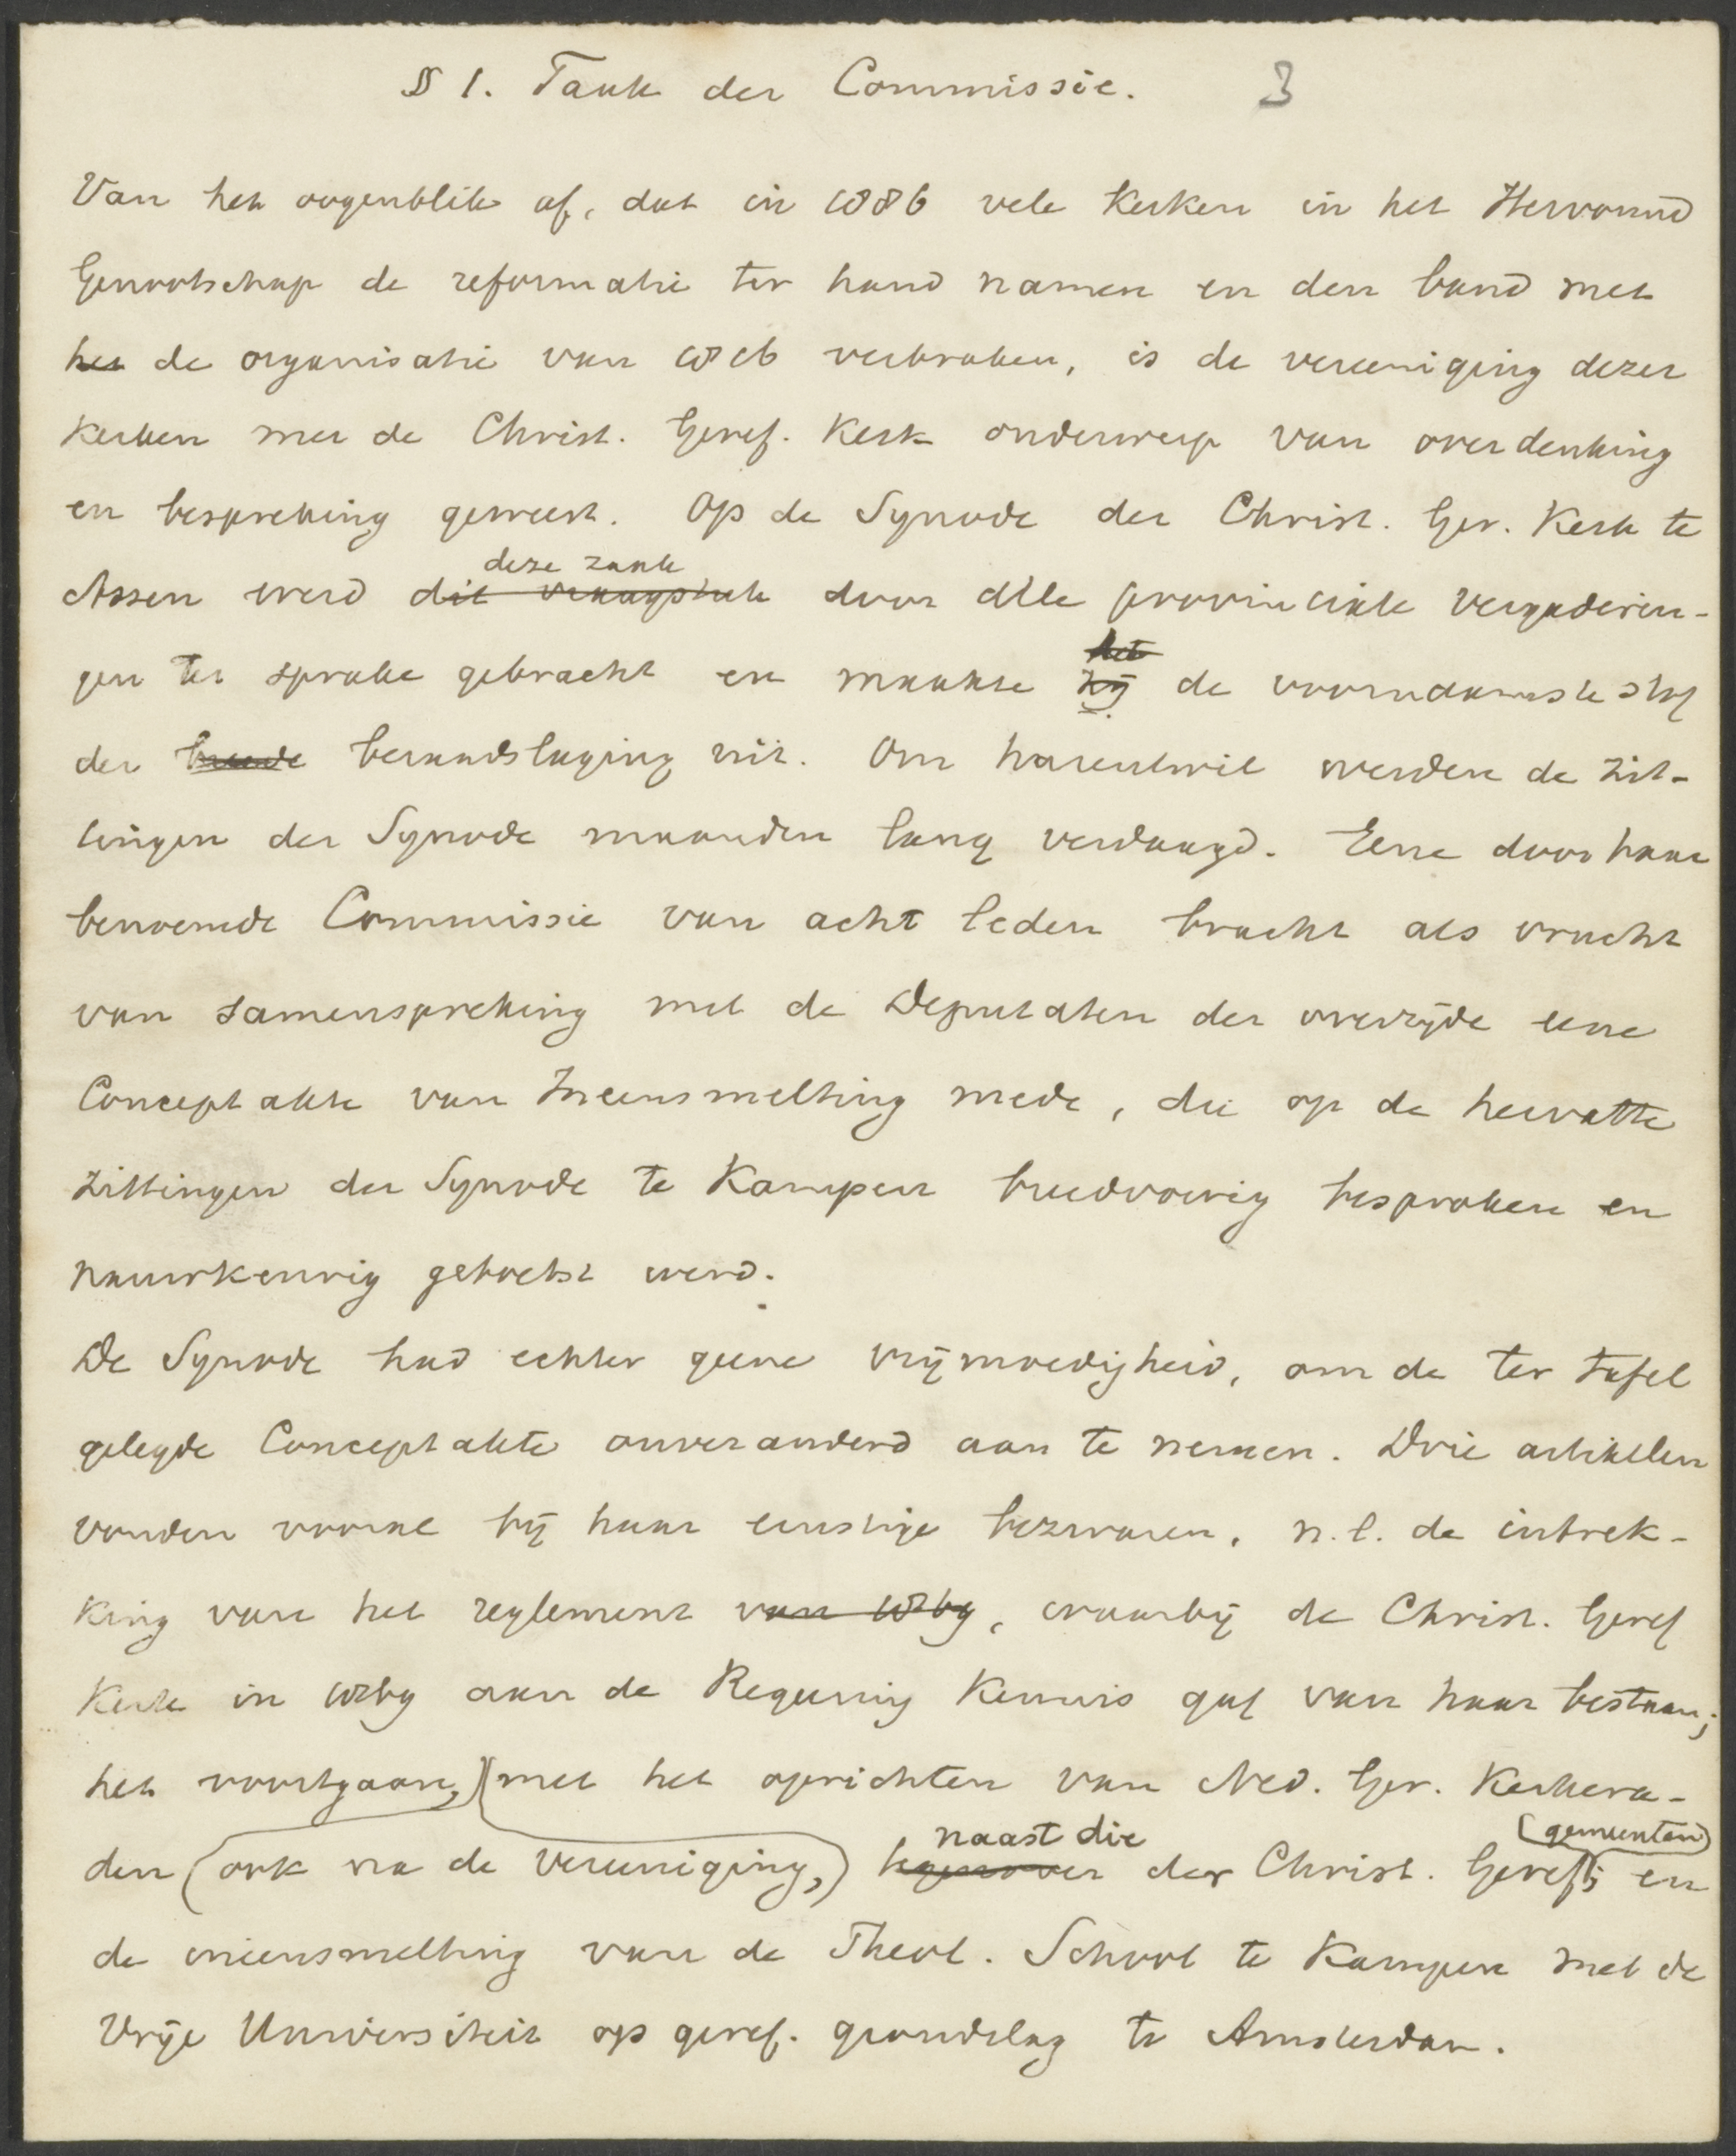 § 1. Taak der Commissie. 3
Van het oogenblik af, dat in 1886 vele Kerken in het Hervormd
Genootschap de reformatie ter hand namen en den band met
het de organisatie van 1816 verbraken, is de vereeniging dezer
Kerken met de Christ. Geref. Kerk onderwerp van overdenking
en bespreking geweest. Op de Synode der Christ. Ger. Kerk te
deze zaak
Assen werd dit vraagstuk door alle provinciale vergaderin-
het
gen ter sprake gebracht en maakte zij de voornaamste stof
der breede beraadslaging uit. Om harentwil werden de zit-
tingen der Synode maanden lang verdaagd. Eene door haar
benoemde Commissie van acht leden bracht als vrucht
van samenspreking met de Deputaten der overzijde eene
Conceptakte van Ineensmelting mede, die op de hervatte
zittingen der Synode te Kampen breedvoerig besproken en
nauwkeurig getoetst werd.
De Synode had echter geene vrijmoedigheid, om de ter tafel
gelegde Conceptakte onveranderd aan te nemen. Drie artikelen
vonden vooral bij haar ernstige bezwaren, n.l. de intrek-
king van het reglement van 1869, waarbij de Christ. Geref
Kerk in 1869 aan de Regeering kennis gaf van haar bestaan;
het voortgaan, met het oprichten van Ned. Ger. Kerkera-
naast die (gemeenten)
den (ook na de vereeniging,) tegenover der Christ. Geref; en
de ineensmelting van de Theol. School te Kampen met de
Vrije Universiteit op geref. grondslag te Amsterdam.